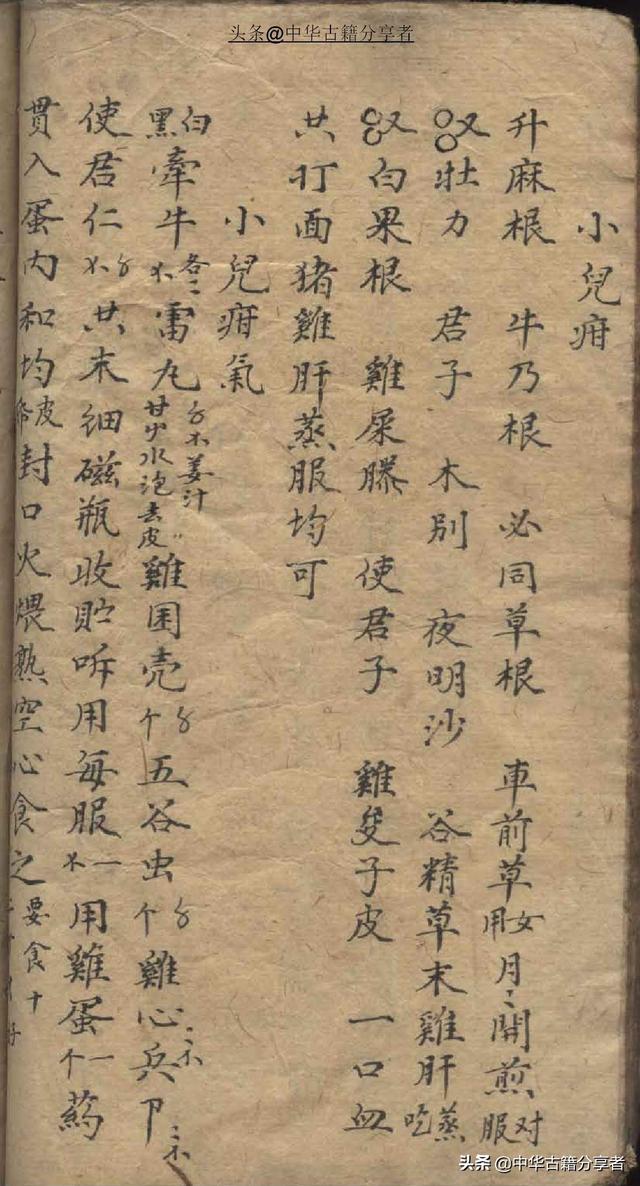 头条@中华古籍分享者
小兒疳
升麻根 牛乃根 必同草根 車前草 用女月 開煎 服对
又 牡力 君子 木别 夜明沙 谷精草末雞肝蒸吃
又 白果根 雞屎藤 使君子 雞 子皮 一口血
共打面猪雞肝蒸服均可
小兒疳氣
黑白牽牛 各二 雷丸 姜汁 甘 水泡去皮 雞 壳 五谷虫 雞心兵
使君仁 共末细磁瓶收貯 用每服一 用雞蛋一个 葯
貫入蛋内和均 皮 封口火煨熟空心食之 要食十
头条 @中华古籍分享者